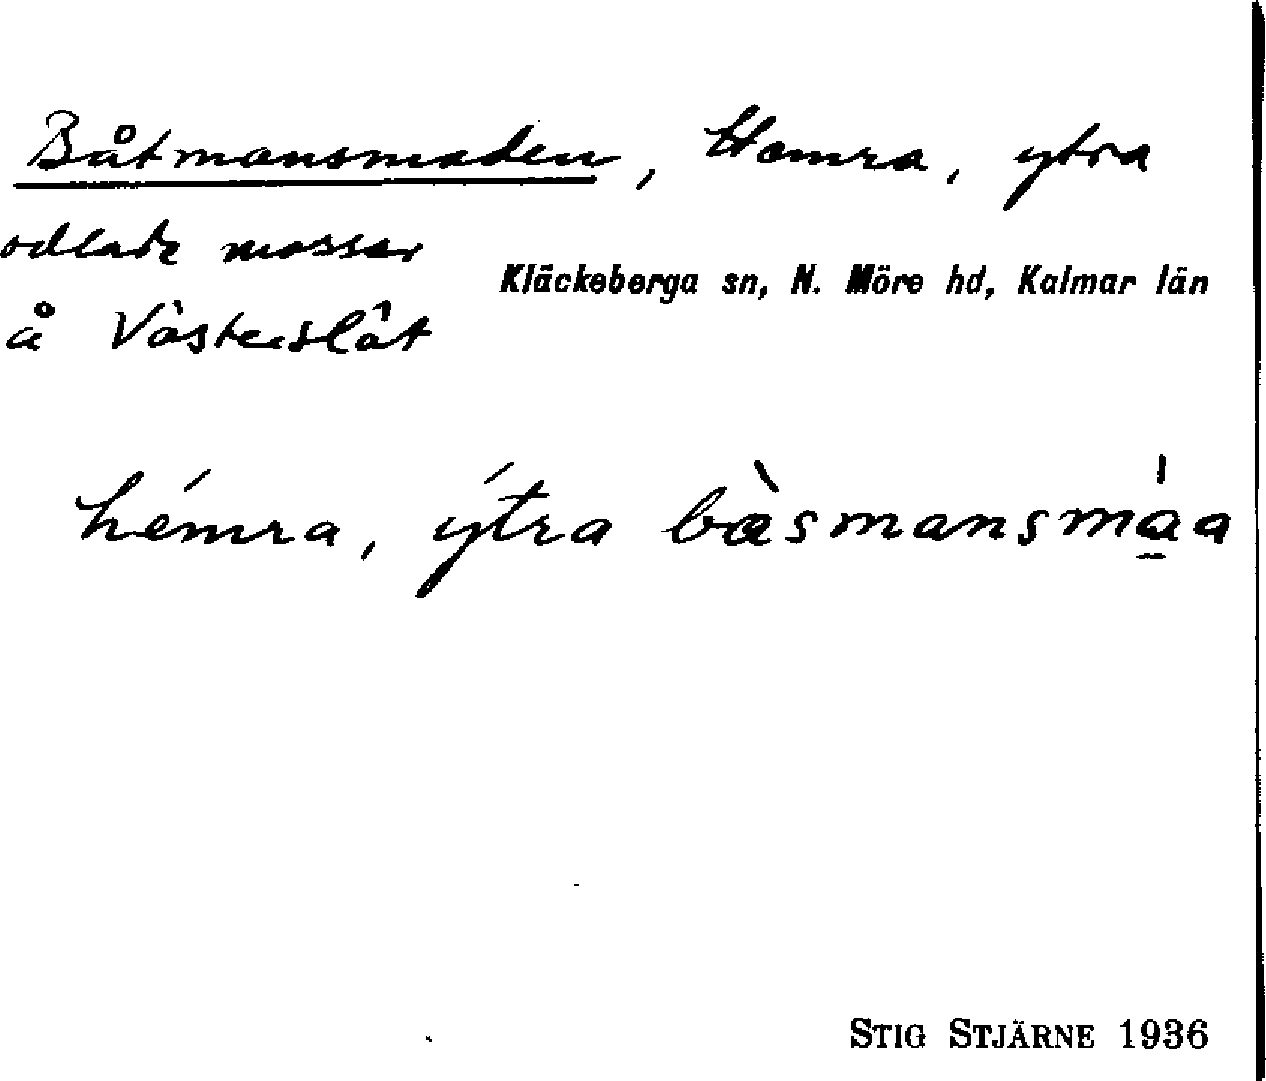 Båtmansmaden, Hemra, ytra
odlade mossar
Kläckeberga sn, N. Möre hd, Kalmar län
å Västerslät
hémra, ýtra bæ̀smansmá̱a
STIG STJÄRNE 1936